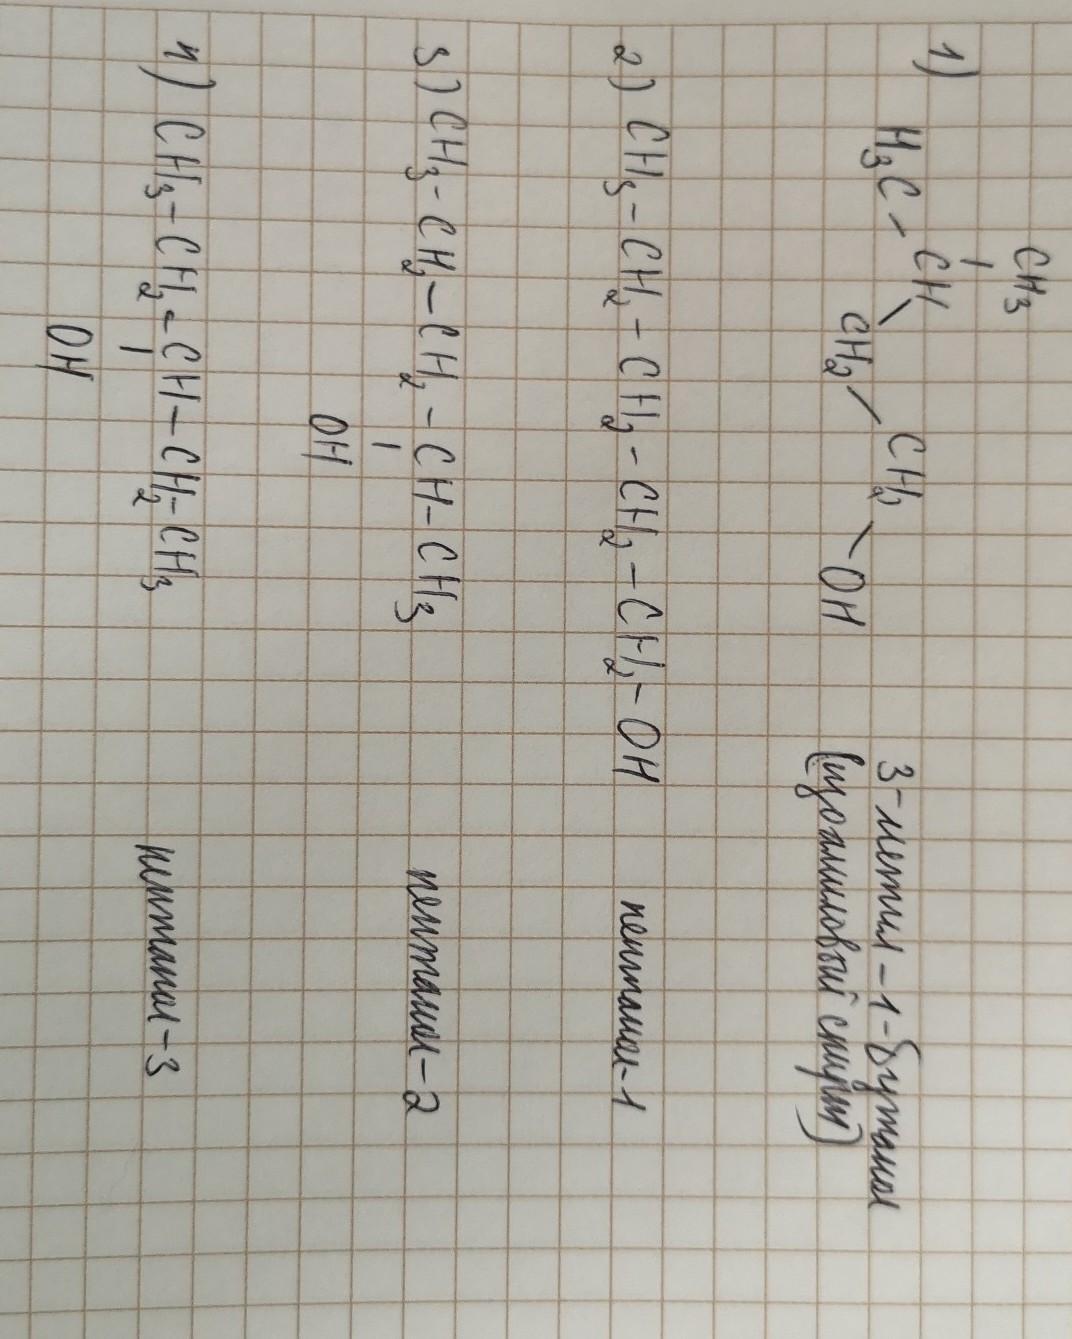 CH₃
|
1) H₃C-CH CH₂-OH
\ /
CH₂
3-метил-1-бутанол
(изоамиловый спирт)
2) CH₃-CH₂-CH₂-CH₂-CH₂-OH пентанол-1
3) CH₃-CH₂-CH₂-CH-CH₃ пентанол-2
|
OH
4) CH₃-CH₂-CH-CH₂-CH₃ пентанол-3
|
OH